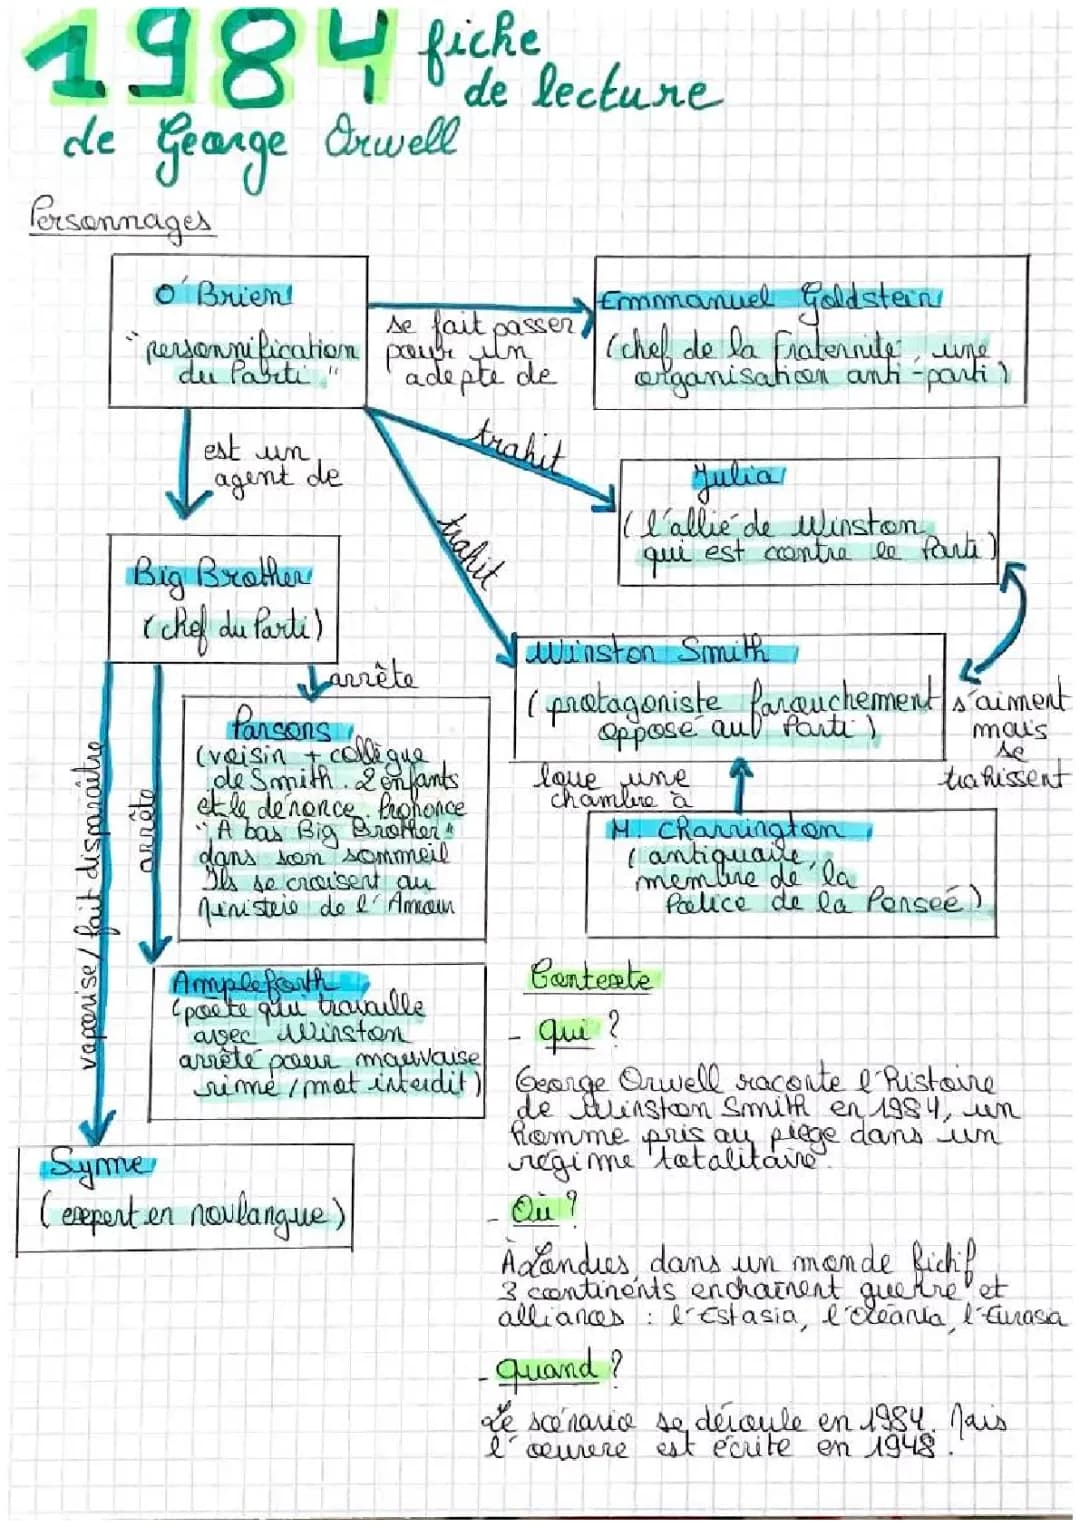 1984 fiche
de lecture
de George Orwell
Personnages
O'Brien
"personnification
du Parti"
se fait passer
pour un
adepte de
Emmanuel Goldstein
(chef de la Fraternité, une
organisation anti-parti)
est un
agent de
trahit
trahit
Julia
(l'allié de Winston
qui est contre le Parti)
Big Brother
(chef du Parti)
arrête
Winston Smith
(protagoniste farouchement
opposé au Parti)
s'aiment
mais
se
trahissent
Parsons
(voisin + collègue
de Smith. 2 enfants
et le dénonce. Prononce
"A bas Big Brother"
dans son sommeil
Ils se croisent au
Ministère de l'Amour
loue une
chambre à
M. Charrington
(antiquaire,
membre de la
Police de la Penseé)
vaporise/fait disparaître
arrête
Ampleforth
(poète qui travaille
avec Winston
arrêté pour mauvaise
rime/mot interdit)
Syme
(expert en novlangue)
Contexte
- qui ?
George Orwell raconte l'histoire
de Winston Smith en 1984, un
homme pris au piège dans un
régime totalitaire.
- Où ?
À Londres, dans un monde fictif
3 continents enchaînent guerre et
alliances : l'Estasia, l'Océania, l'Eurasia
- quand ?
Le scénario se déroule en 1984. Mais
l'oeuvre est écrite en 1948.